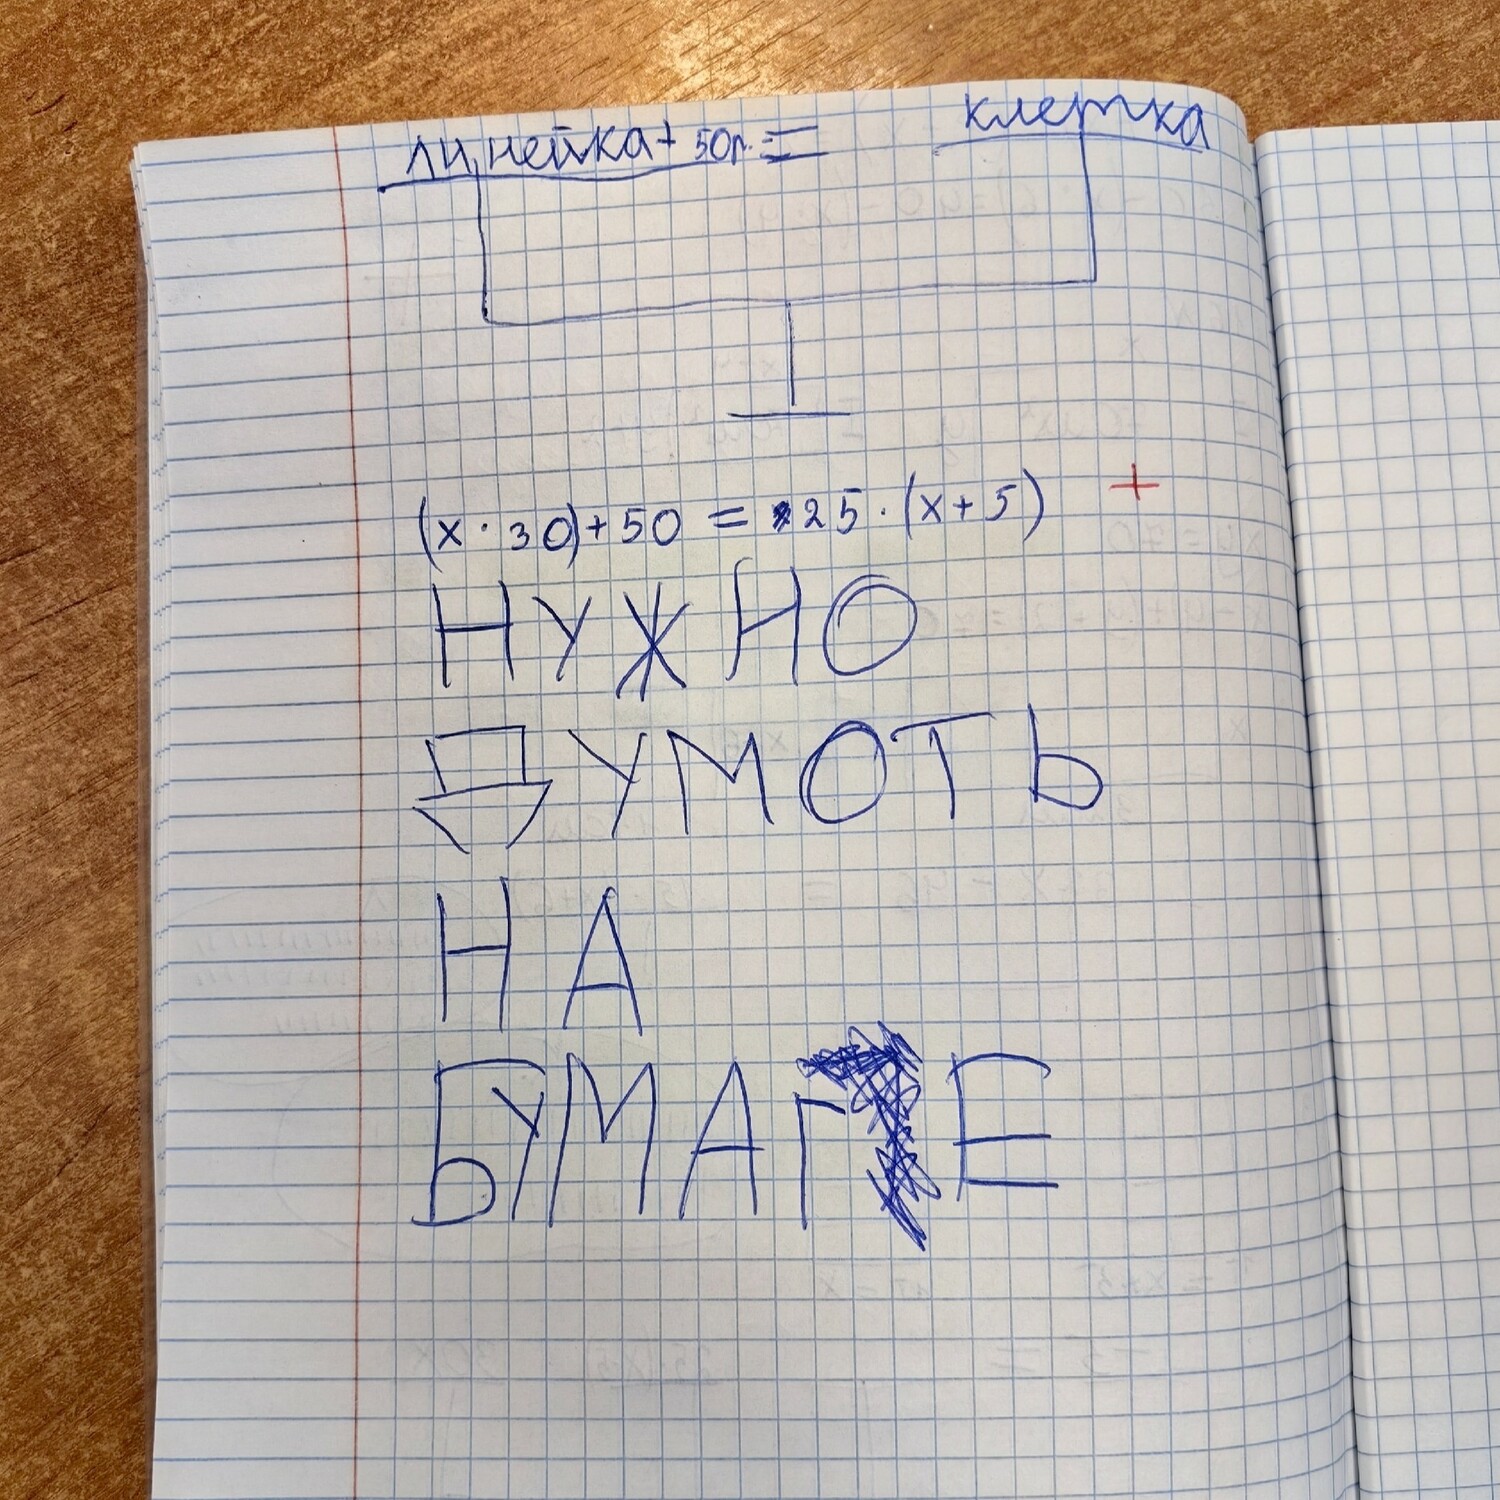 линейка + 50р. = клетка
(x · 30) + 50 = 25 · (x + 5) +
НУЖНО
ДУМОТЬ
НА
БУМАГЕ